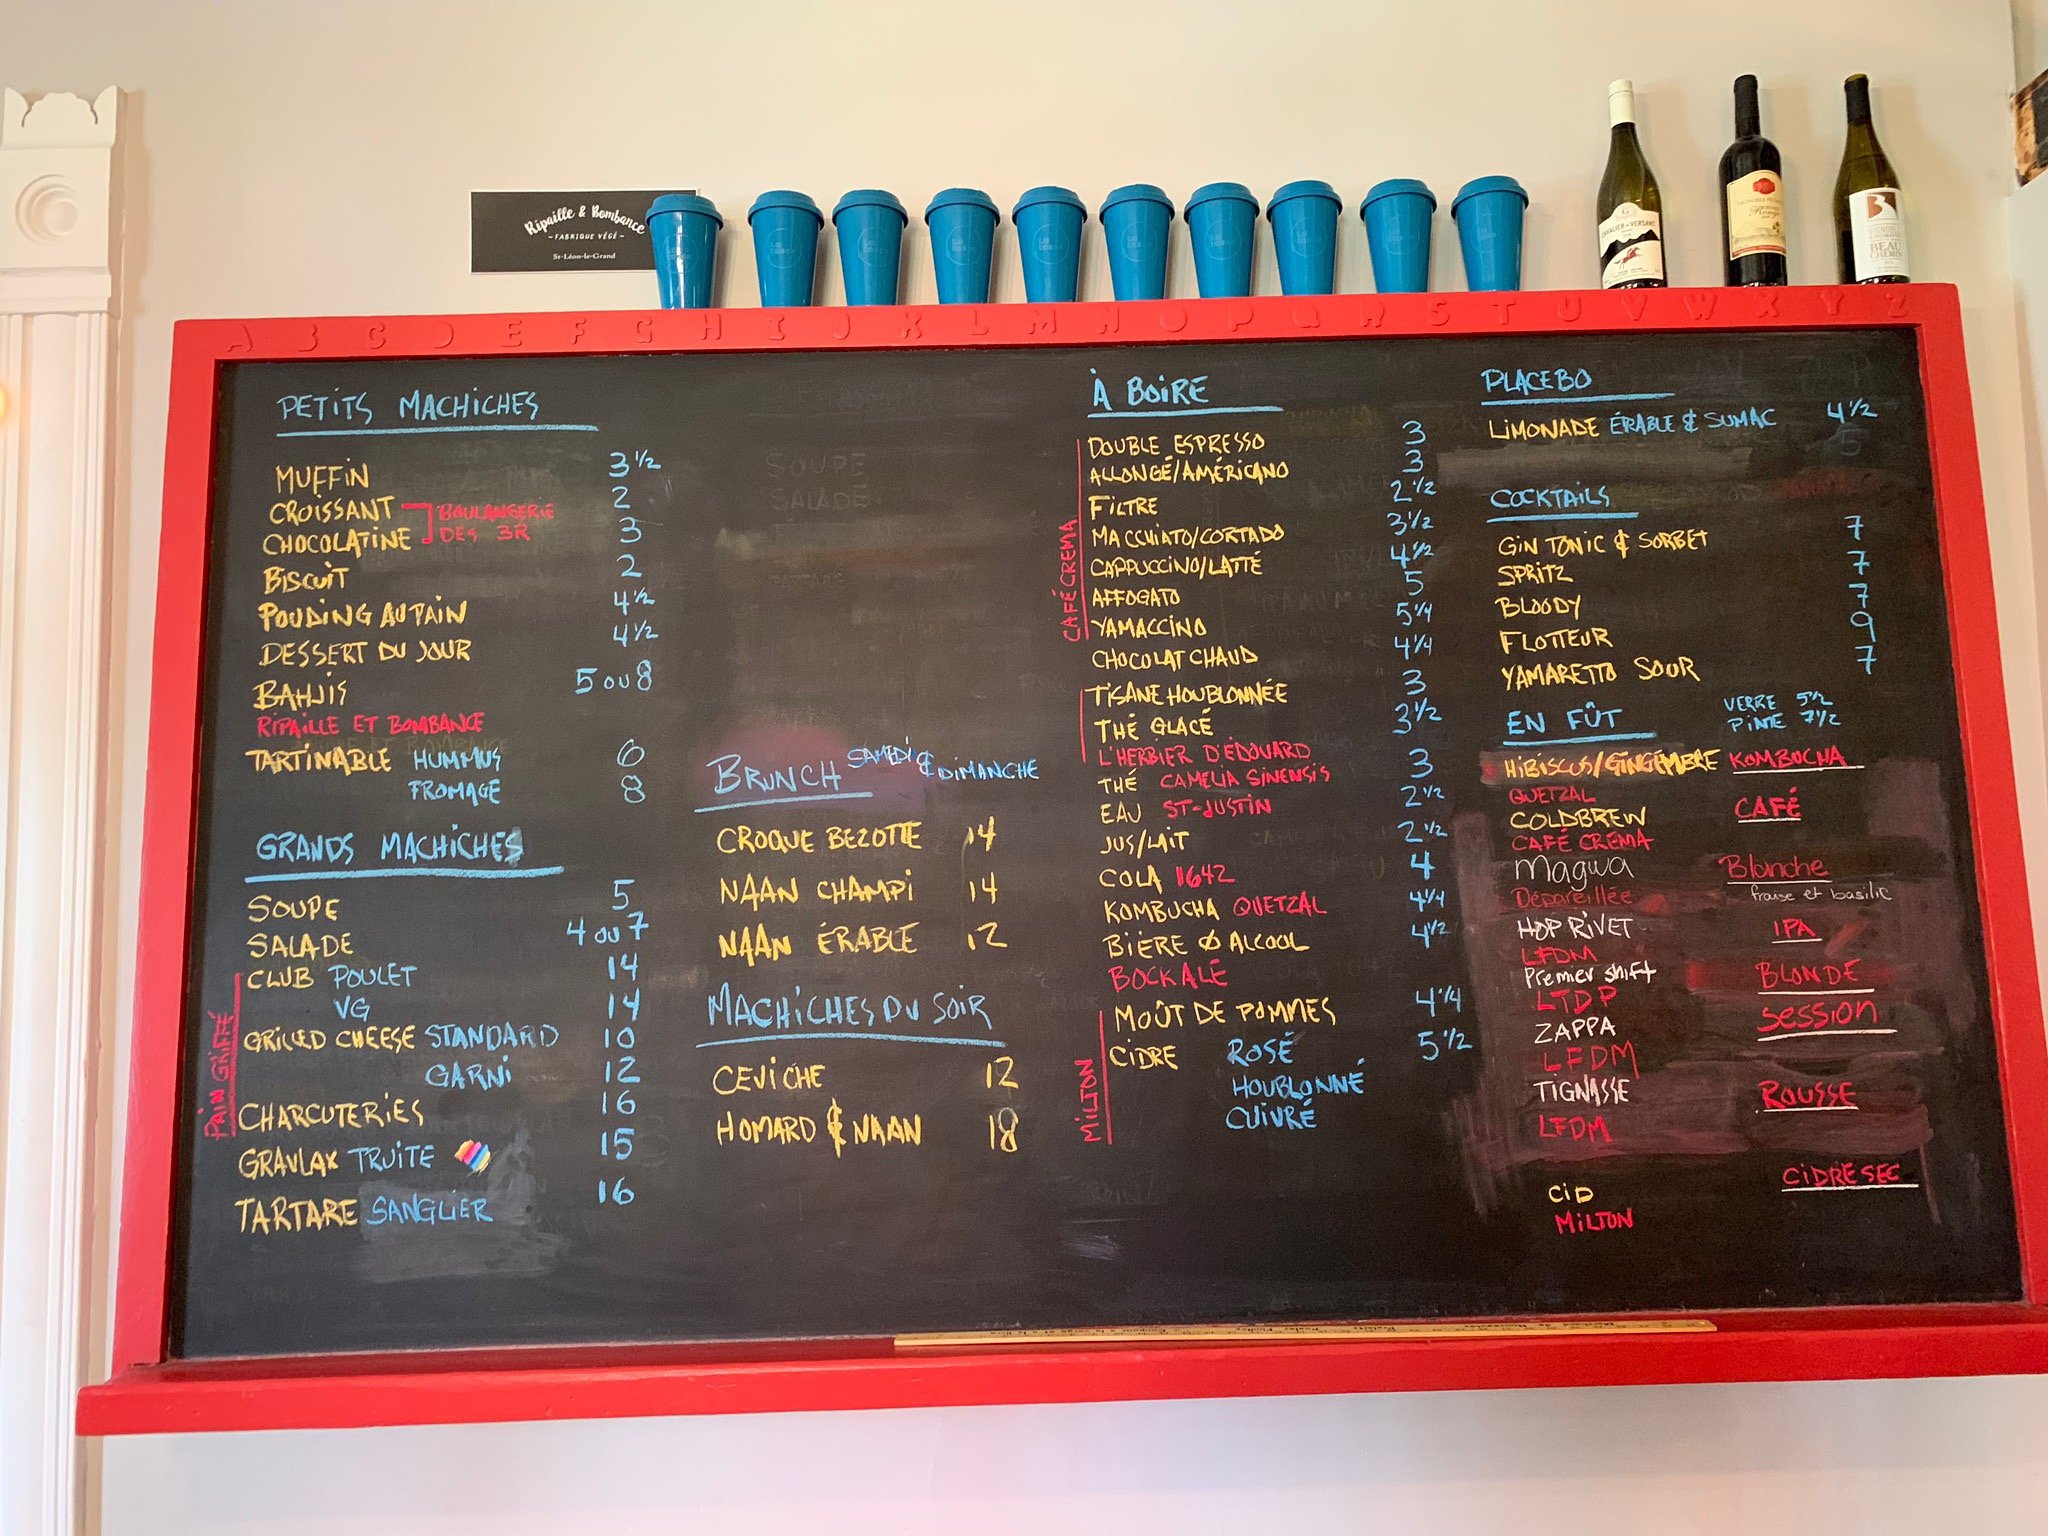 Ripaille & Bombance
- FABRIQUE VÉGÉ -
St-Léon-le-Grand
CHEVALIER DU VERSANT
BEAU
CHEMIN
A B C D E F G H I J K L M N O P Q R S T U V W X Y Z
PETITS MACHICHES
MUFFIN 3 1/2
CROISSANT 2
CHOCOLATINE 3
BOULANGERIE
DES 3R
BISCUIT 2
POUDING AU PAIN 4 1/2
DESSERT DU JOUR 4 1/2
BAHJIS 5 OU 8
RIPAILLE ET BOMBANCE
TARTINABLE HUMMUS 6
FROMAGE 8
GRANDS MACHICHES
SOUPE 5
SALADE 4 OU 7
PAIN GRIFFÉ
CLUB POULET 14
VG 14
GRILLED CHEESE STANDARD 10
GARNI 12
CHARCUTERIES 16
GRAVLAX TRUITE 15
TARTARE SANGLIER 16
SOUPE
SALADE
BRUNCH SAMEDI & DIMANCHE
CROQUE BEZOTTE 14
NAAN CHAMPI 14
NAAN ÉRABLE 12
MACHICHES DU SOIR
CEVICHE 12
HOMARD & NAAN 18
À BOIRE
CAFÉ CREMA
DOUBLE ESPRESSO 3
ALLONGÉ/AMÉRICANO 3
FILTRE 2 1/2
MACCHIATO/CORTADO 3 1/2
CAPPUCCINO/LATTÉ 4 1/2
AFFOGATO 5
YAMACCINO 5 1/4
CHOCOLAT CHAUD 4 1/4
TISANE HOUBLONNÉE 3
THÉ GLACÉ 3 1/2
L'HERBIER D'ÉDOUARD
THÉ CAMELIA SINENSIS 3
EAU ST-JUSTIN 2 1/2
JUS/LAIT 2 1/2
COLA 1642 4
KOMBUCHA QUETZAL 4 1/4
BIÈRE Ø ALCOOL 4 1/2
BOCKALE
MILTON
MOÛT DE POMMES 4 1/4
CIDRE ROSÉ 5 1/2
HOUBLONNÉ
CUIVRÉ
PLACEBO
LIMONADE ÉRABLE & SUMAC 4 1/2
5
COCKTAILS
GIN TONIC & SORBET 7
SPRITZ 7
BLOODY 7
FLOTTEUR 9
YAMARETTO SOUR 7
EN FÛT
VERRE 5 1/2
PINTE 7 1/2
HIBISCUS/GINGEMBRE KOMBUCHA
QUETZAL
COLDBREW CAFÉ
CAFÉ CRÉMA
Magwa Blanche
Dépareillée fraise et basilic
HOP RIVET IPA
LFDM
Premier shift BLONDE
LTDP
ZAPPA Session
LFDM
TIGNASSE ROUSSE
LFDM
CIDRE SEC
CID
MILTON